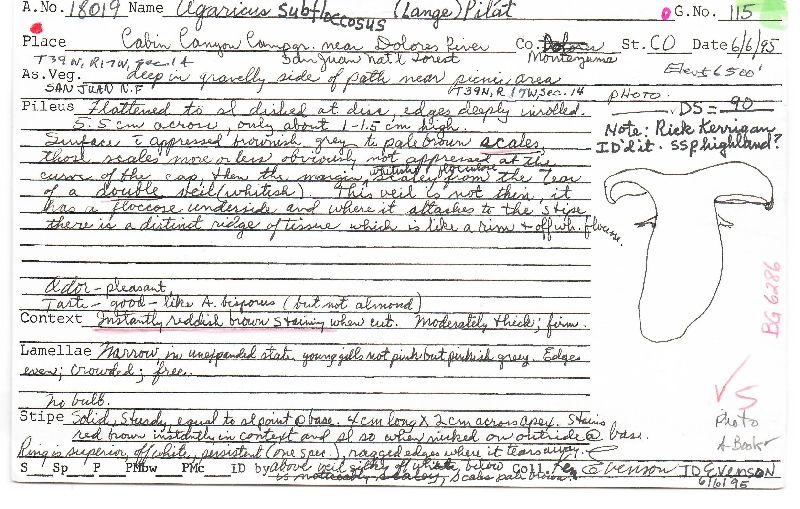 A.No. 18019 Name Agaricus subfloccosus (Lange) Pilát G.No. 115
Place Cabin Canyon Campgr. near Dolores River Co. Dolores St. CO Date 6/6/95
T39N, R17W, Sec. 14 San Juan Nat'l Forest Montezuma Elev± 6500'
As. Veg. deep in gravelly side of path near picnic area
SAN JUAN N.F T39N, R17W, Sec. 14 PHOTO
Pileus Flattened to sl dished at disc, edges deeply inrolled. DS = 90
5.5cm across, only about 1-1.5 cm high.
Surface c appressed brownish grey to pale brown scales,
those scales more or less obviously not appressed at the
curve of the cap, then the margin whitish, floccose from the tear
of a double veil (whitish). This veil is not thin, it
has a floccose underside and where it attaches to the stipe
there is a distinct ridge of tissue which is like a rim + off wh. floccose.
Note: Rick Kerrigan
ID'd it. ssp highland?
Odor - pleasant,
Taste - good - like A. bisporus (but not almond)
Context Instantly reddish brown staining when cut. Moderately thick; firm.
Lamellae Narrow, in unexpanded state, young gills not pink but pinkish grey. Edges
even; crowded; free.
No bulb.
Stipe Solid, sturdy, equal to sl point @ base. 4cm long X 2cm across apex. Stains
red brown instantly in context and sl so when nicked on outside @ base.
Ring is superior, off white, persistent (one spec.), ragged edges where it tears away.
S Sp P PMbw PMc ID by above veil silky off white, below Coll. Evenson ID EVENSON
is noticeably scaley, scales pale brown. 6/6/95
BG 6286
VS
Photo
A Book